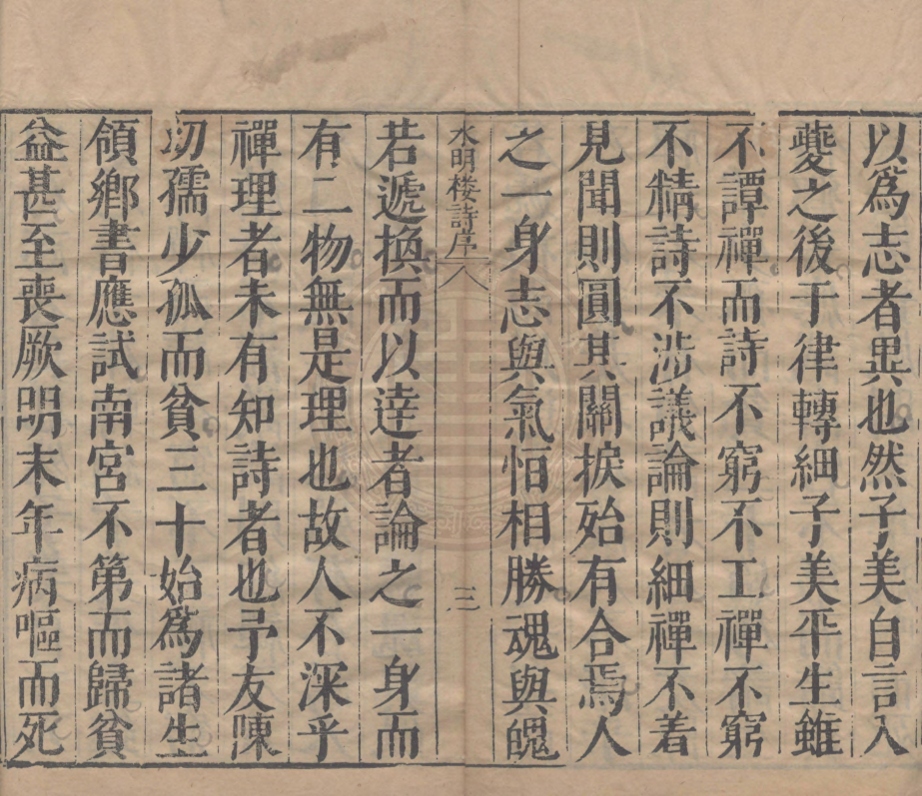 以爲志者異也然子美自言入
夔之後于律轉細子美平生雖
不譚禪而詩不窮不工禪不窮
不精詩不涉議論則細禪不着
見聞則圓其關捩始有合焉人
之一身志與氣恒相勝魂與魄
水明楼詩序 三
若遞換而以達者論之一身而
有二物無是理也故人不深乎
禪理者未有知詩者也予友陳
㓜孺少孤而貧三十始爲諸生
領鄉書應試南宮不第而歸貧
益甚至喪厥明末年病嘔而死